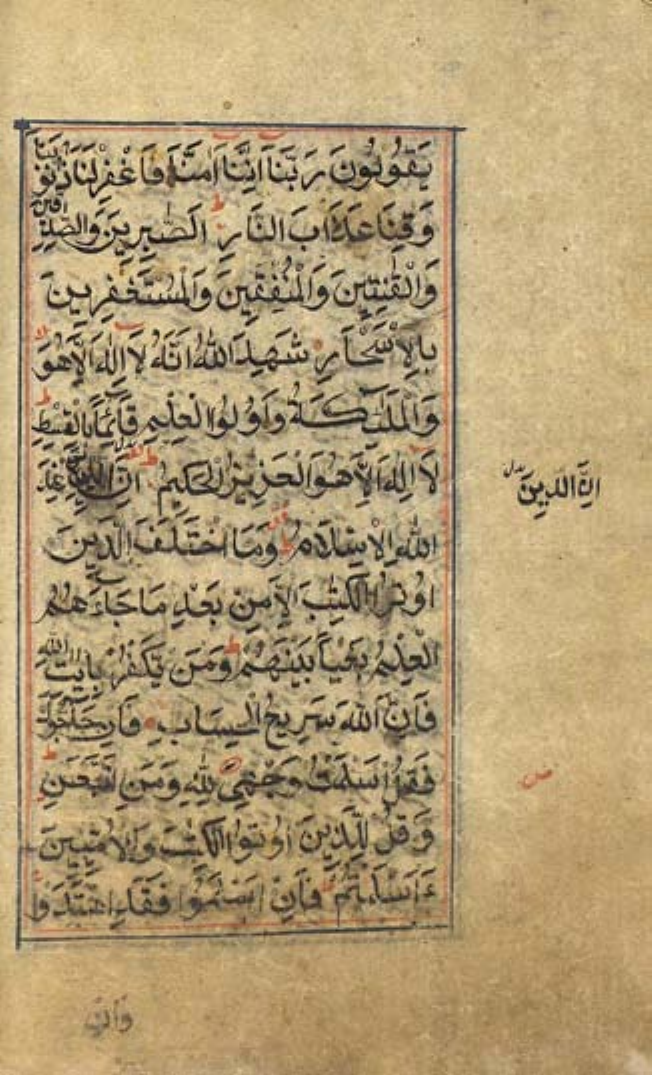 يَقُولُونَ رَبَّنَا اِنَّنَا اٰمَنَّا فَاغْفِرْلَنَا ذُنُوبَنَا
وَقِنَا عَذَابَ النَّارِ ط اَلصّٰبِرِينَ وَالصّٰدِقِينَ
وَالْقٰنِتِينَ وَالْمُنْفِقِينَ وَالْمُسْتَغْفِرِينَ
بِالْاَسْحَارِ شَهِدَ اللّٰهُ اَنَّهُ لَا اِلٰهَ اِلَّا هُوَ
وَالْمَلٰئِكَةُ وَاُولُوا الْعِلْمِ قَائِمًا بِالْقِسْطِ ط
لَا اِلٰهَ اِلَّا هُوَ الْعَزِيزُ الْحَكِيمُ ط اِنَّ الدِّينَ عِنْدَ
اللّٰهِ الْاِسْلَامُ وَمَا اخْتَلَفَ الَّذِينَ
اُوتُوا الْكِتٰبَ اِلَّا مِنْ بَعْدِ مَا جَاءَهُمُ
الْعِلْمُ بَغْيًا بَيْنَهُمْ ط وَمَنْ يَكْفُرْ بِاٰيٰتِ اللّٰهِ
فَاِنَّ اللّٰهَ سَرِيعُ الْحِسَابِ فَاِنْ حَاجُّوكَ
فَقُلْ اَسْلَمْتُ وَجْهِيَ لِلّٰهِ وَمَنِ اتَّبَعَنِ ط
وَقُلْ لِلَّذِينَ اُوتُوا الْكِتٰبَ وَالْاُمِّيِّينَ
ءَاَسْلَمْتُمْ ط فَاِنْ اَسْلَمُوا فَقَدِ اهْتَدَوْا
اِنَّ الدِّينَ بدل
ص
وَاِنْ